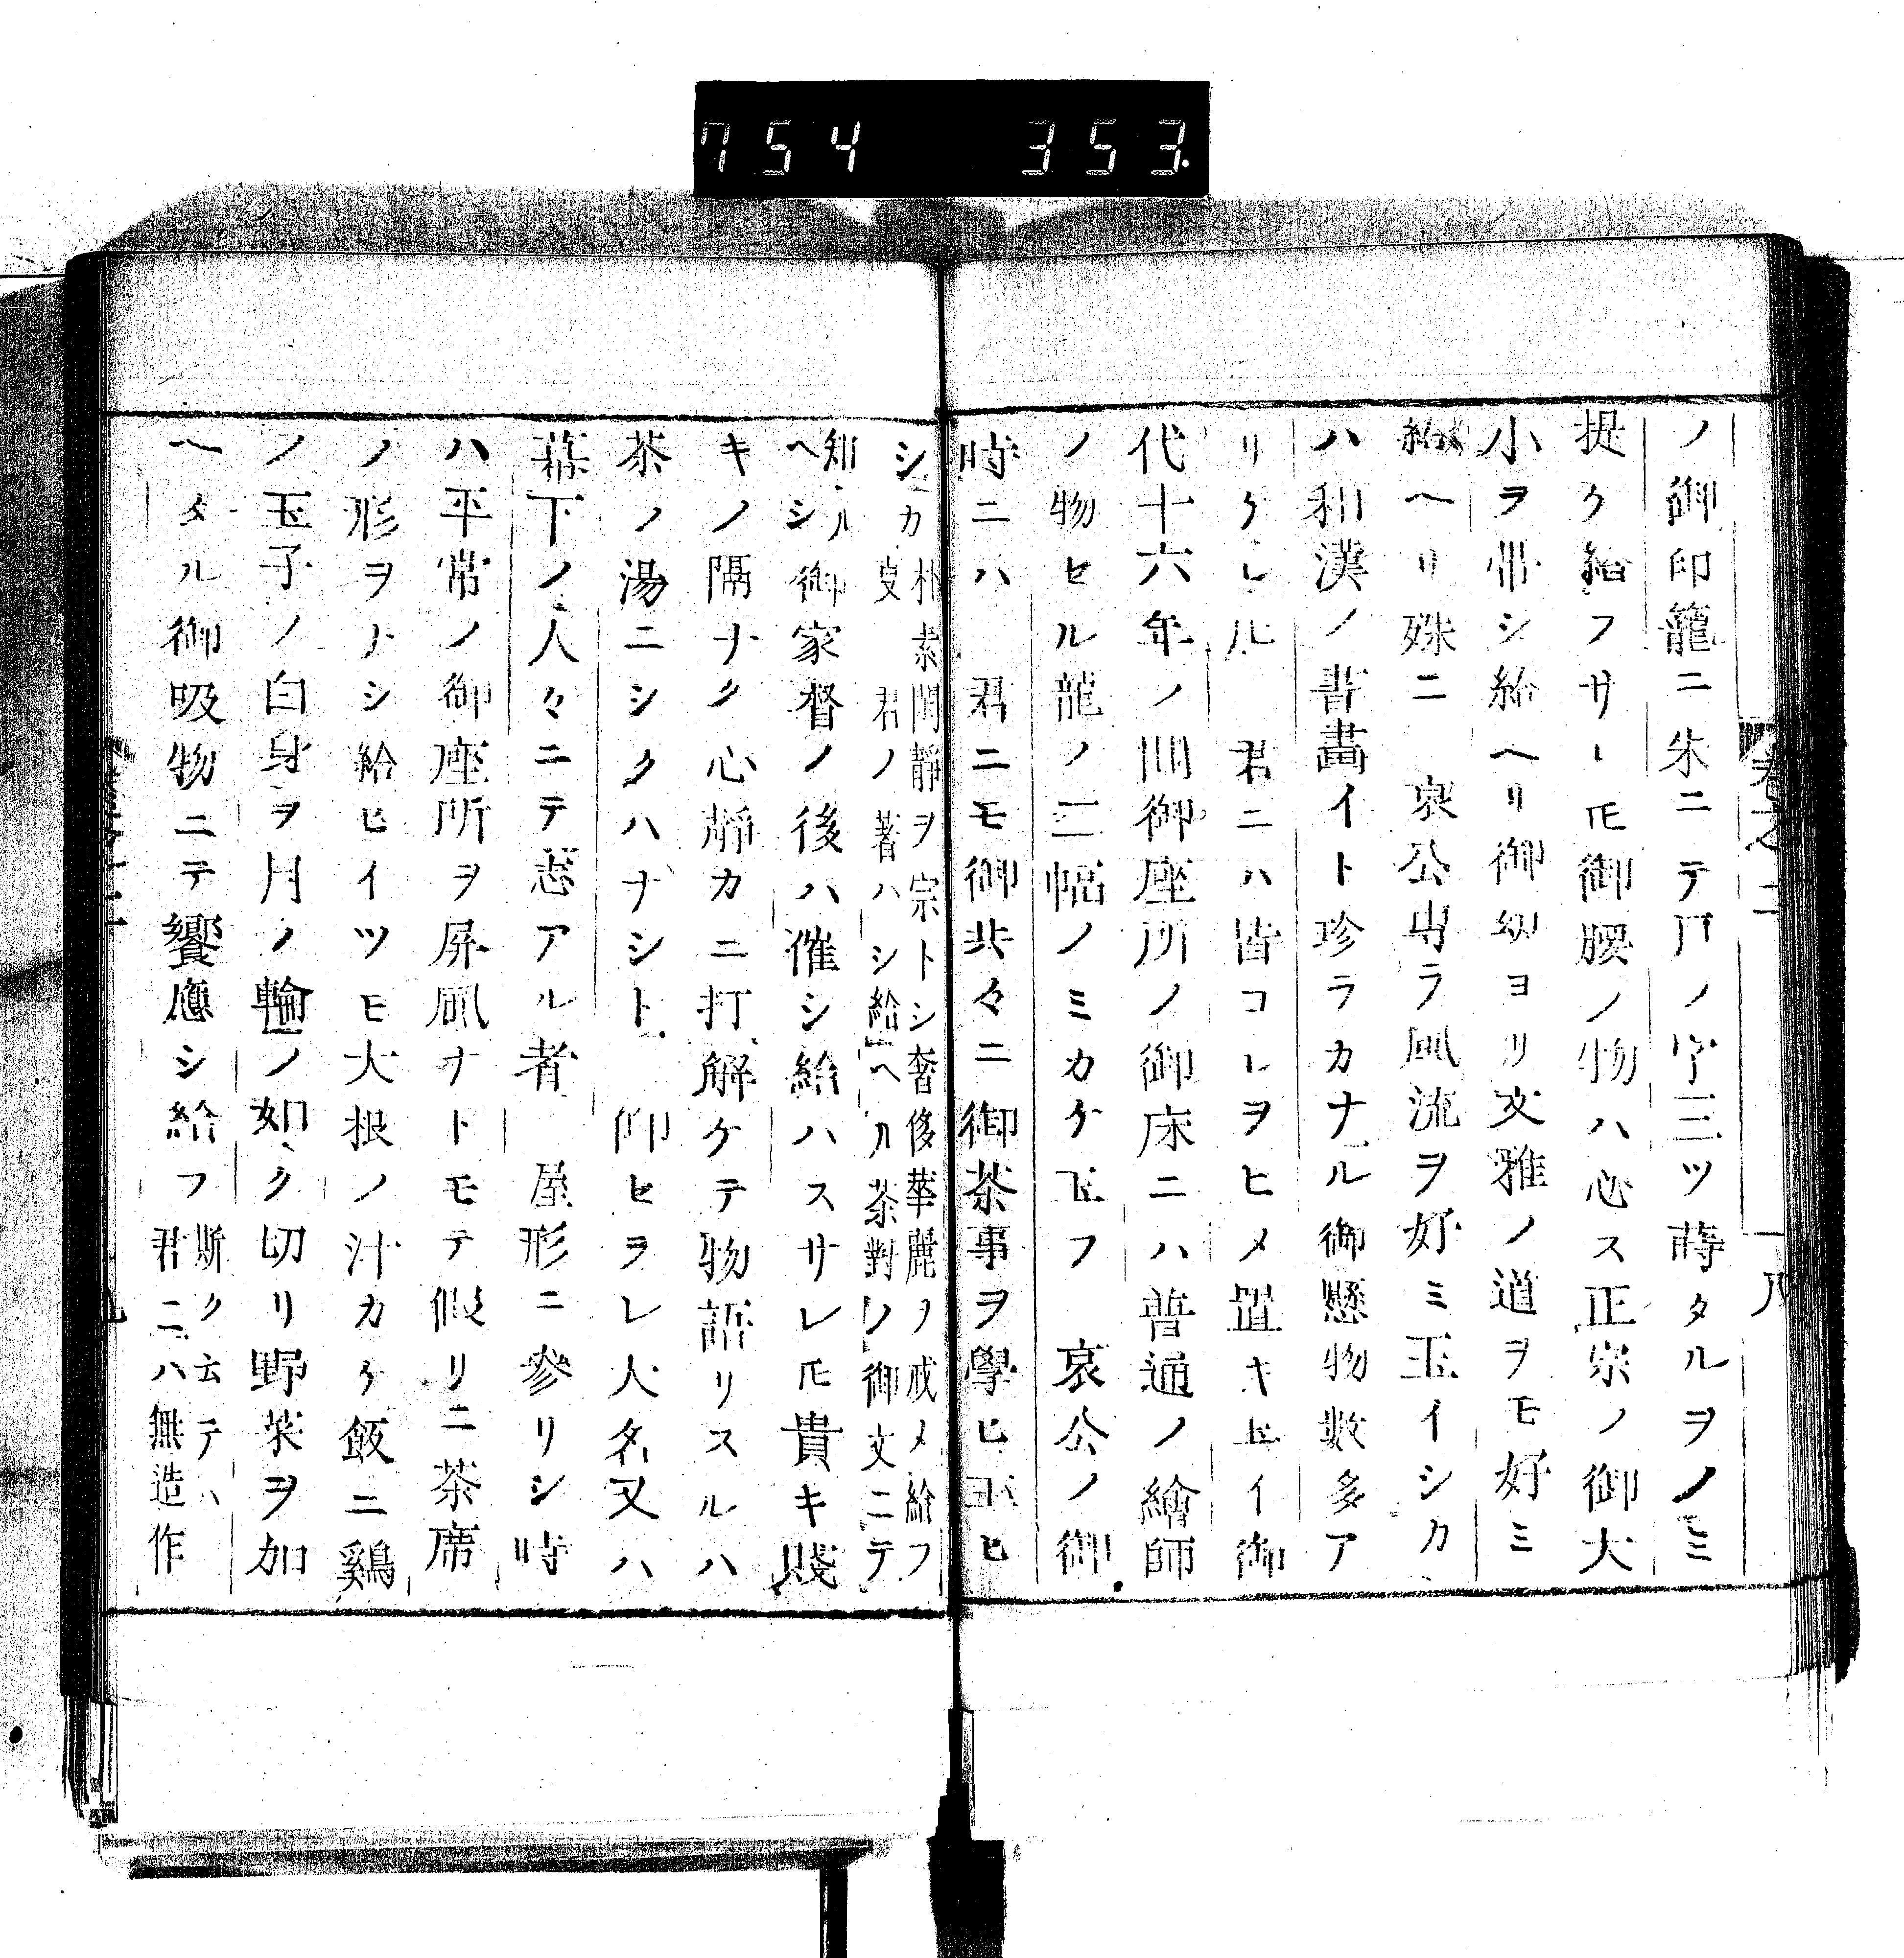 754 353.
卷之二 八
ノ御印籠ニ朱ニテ尸ノ字三ツ蒔タルヲノミ
提ケ給フサレ𪜈御腰ノ物ハ必ス正宗ノ御大
小ヲ帶シ給ヘリ御幼ヨリ文雅ノ道ヲモ好ミ
給ヘリ殊ニ 哀公專ラ風流ヲ好ミ玉イシカ
ハ和漢ノ書畵イト珍ラカナル御懸物數多ア
リケレ𪜈 君ニハ皆コレヲヒメ置キ玉イ御
代十六年ノ間御座所ノ御床ニハ普通ノ繪師
ノ物セル龍ノ二幅ノミカケ玉フ 哀公ノ御
時ニハ 君ニモ御共々ニ御茶事ヲ學ヒ玉ヒ
シカ
朴素閑靜ヲ宗トシ奢侈華麗ヲ戒メ給フ
叓 君ノ著ハシ給ヘル茶對ノ御文ニテ
知ル
ヘシ
御家督ノ後ハ催シ給ハスサレ𪜈貴キ賤
キノ隔ナク心靜カニ打解ケテ物語リスルハ
茶ノ湯ニシクハナシト 仰セヲレ大名又ハ
幕下ノ人々ニテ志アル者 屋形ニ參リシ時
ハ平常ノ御座所ヲ屏風ナトモテ假リニ茶席
ノ形ヲナシ給ヒイツモ大根ノ汁カケ飯ニ鷄
ノ玉子ノ白身ヲ月ノ輪ノ如ク切リ野菜ヲ加
ヘタル御吸物ニテ饗應シ給フ
斯ク云テハ
君ニハ無造作